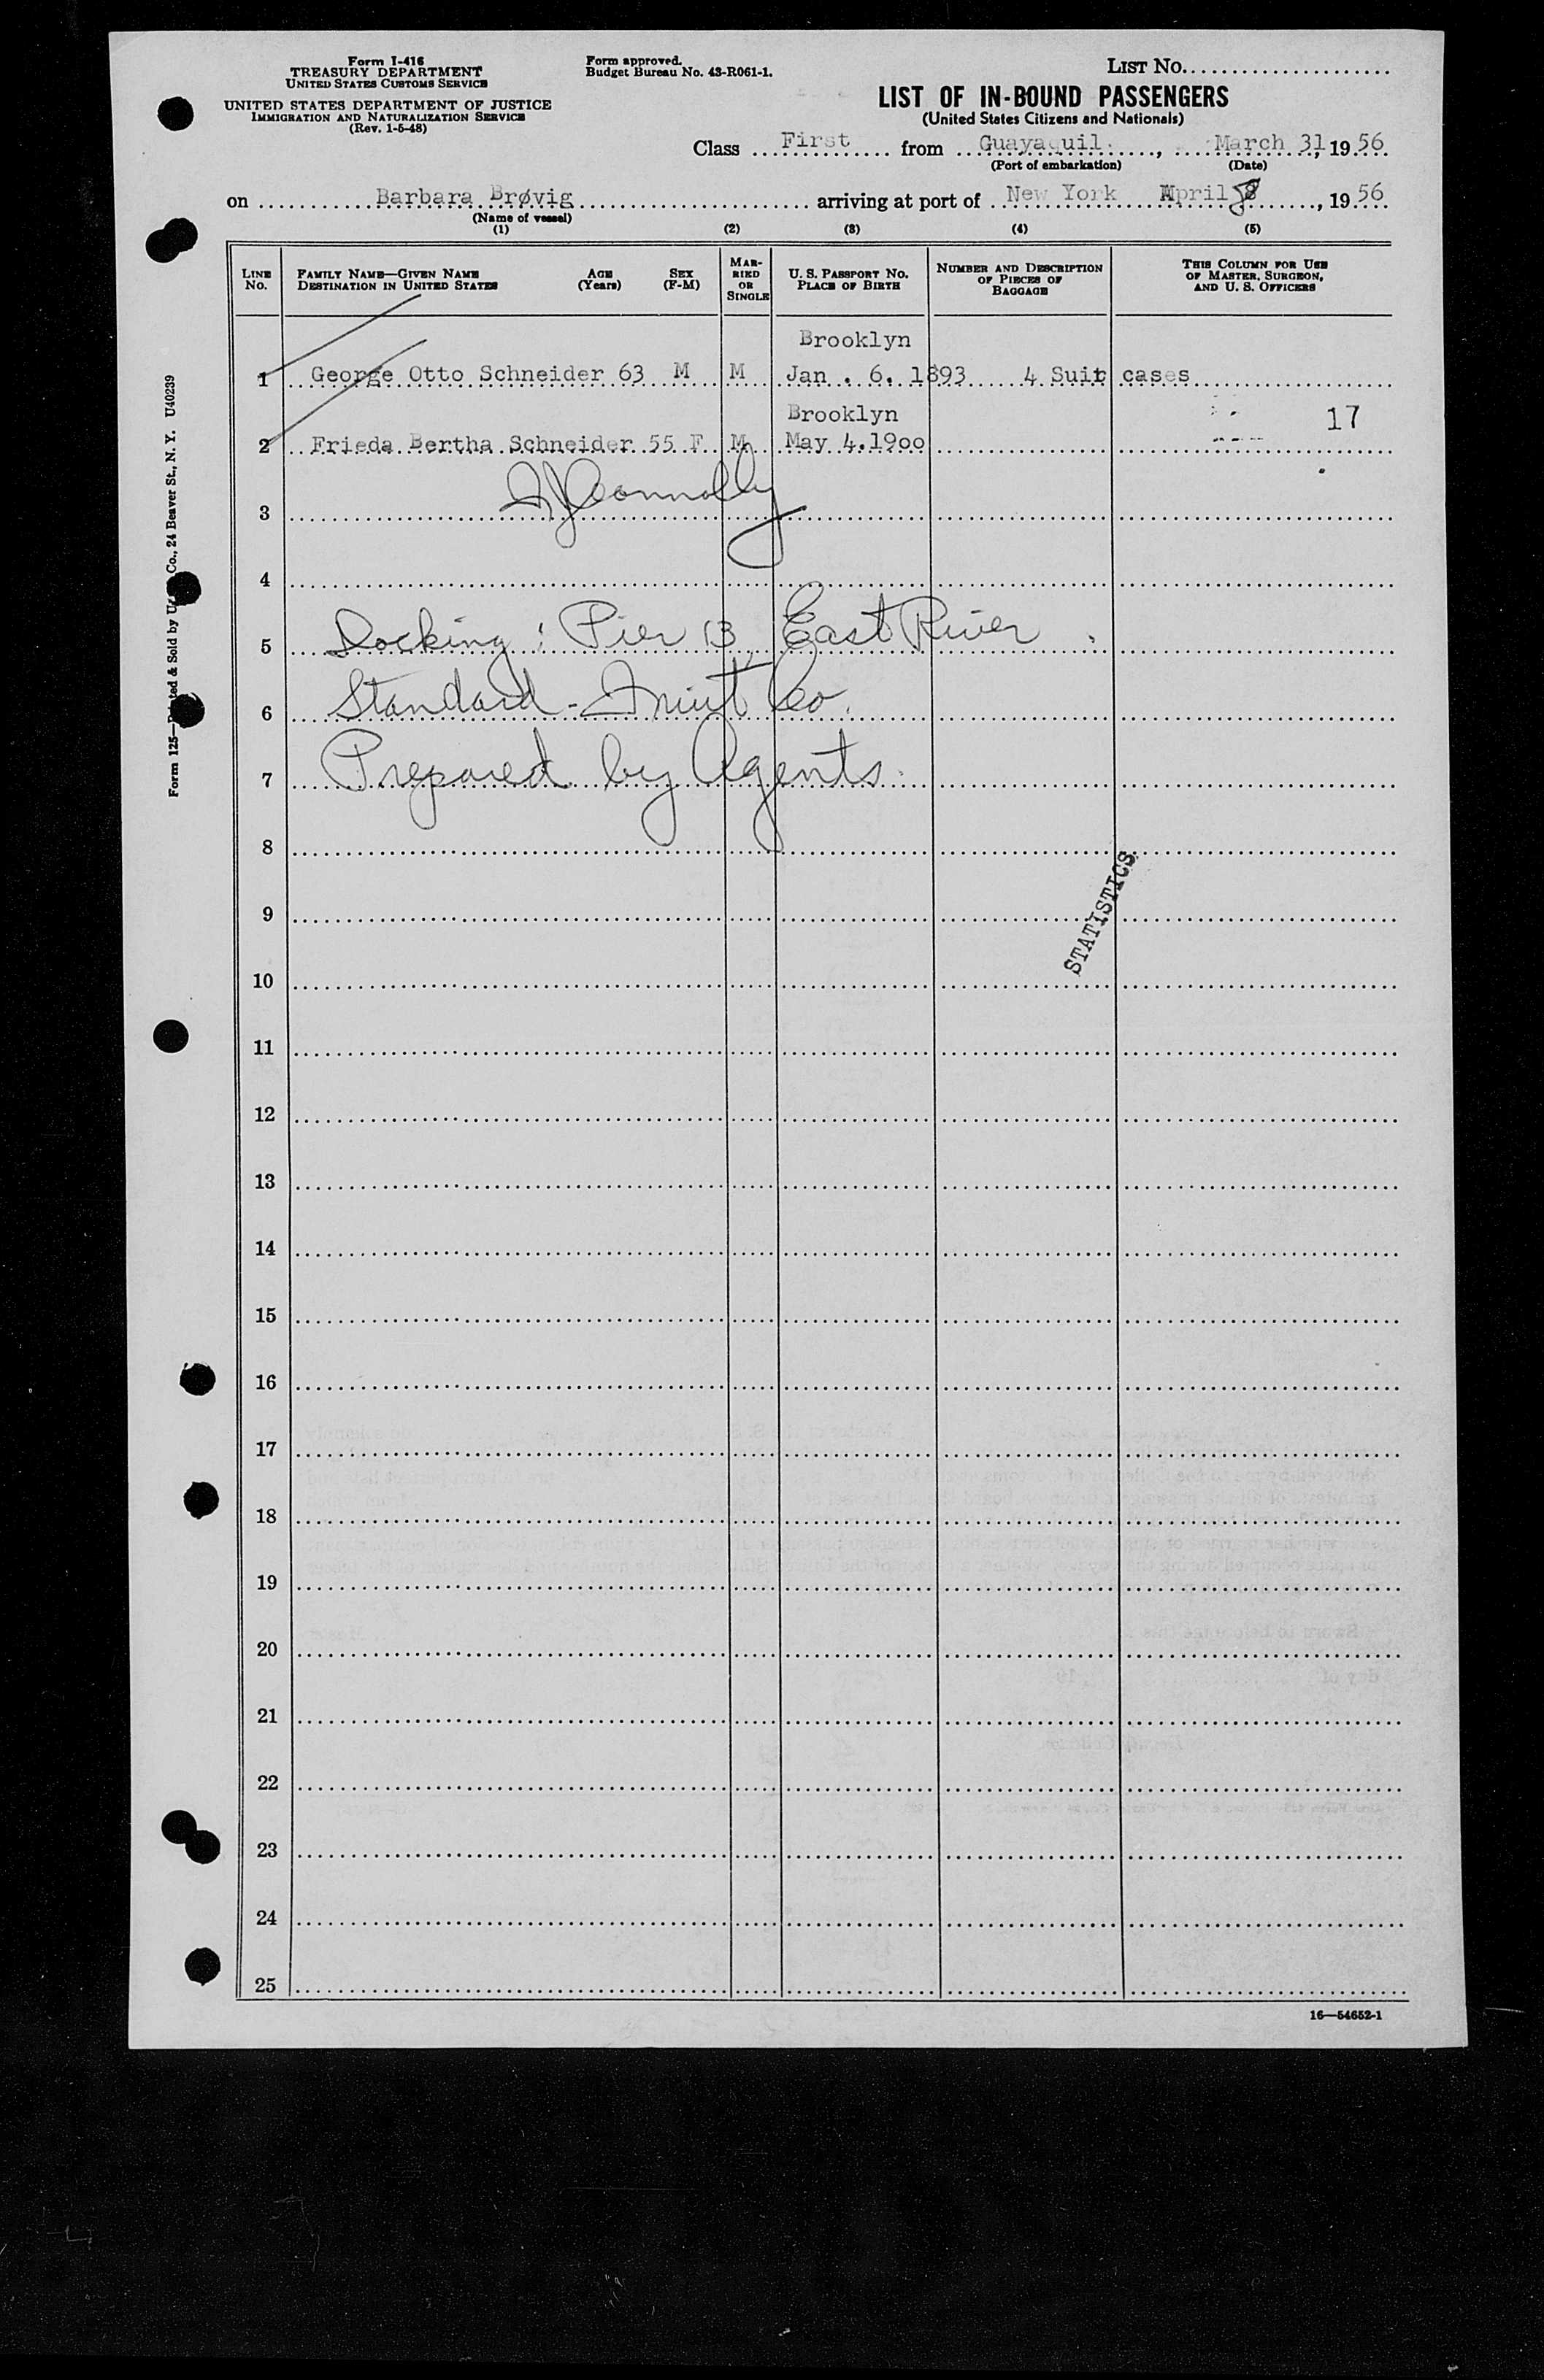 Form I-416
TREASURY DEPARTMENT
UNITED STATES CUSTOMS SERVICE
UNITED STATES DEPARTMENT OF JUSTICE
IMMIGRATION AND NATURALIZATION SERVICE
(Rev. 1-5-48)
Form approved.
Budget Bureau No. 43-R061-1.
LIST No.
LIST OF IN-BOUND PASSENGERS
(United States Citizens and Nationals)
Class First from Guayaquil, March 31, 1956
(Port of embarkation) (Date)
on Barbara Brøvig arriving at port of New York April 8, 1956
(Name of vessel)
(1) (2) (3) (4) (5)
LINE No. FAMILY NAME—GIVEN NAME DESTINATION IN UNITED STATES AGE (Years) SEX (F-M) MARRIED OR SINGLE U. S. PASSPORT No. PLACE OF BIRTH NUMBER AND DESCRIPTION OF PIECES OF BAGGAGE THIS COLUMN FOR USE OF MASTER, SURGEON, AND U. S. OFFICERS
Brooklyn
1 George Otto Schneider 63 M M Jan . 6. 1893 4 Suit cases
Brooklyn 17
2 Frieda Bertha Schneider 55 F M May 4.1900
Connolly
3
4
5 Docking: Pier 13, East River
6 Standard-Fruit Co.
7 Prepared by Agents.
8
STATISTICS
9
10
11
12
13
14
15
16
17
18
19
20
21
22
23
24
25
16—54652-1
Form 125—Printed & Sold by Co., 24 Beaver St., N. Y. U40239